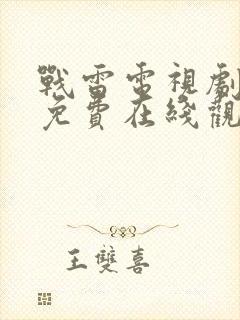 戰雷電視劇
免費在綫觀
王雙喜